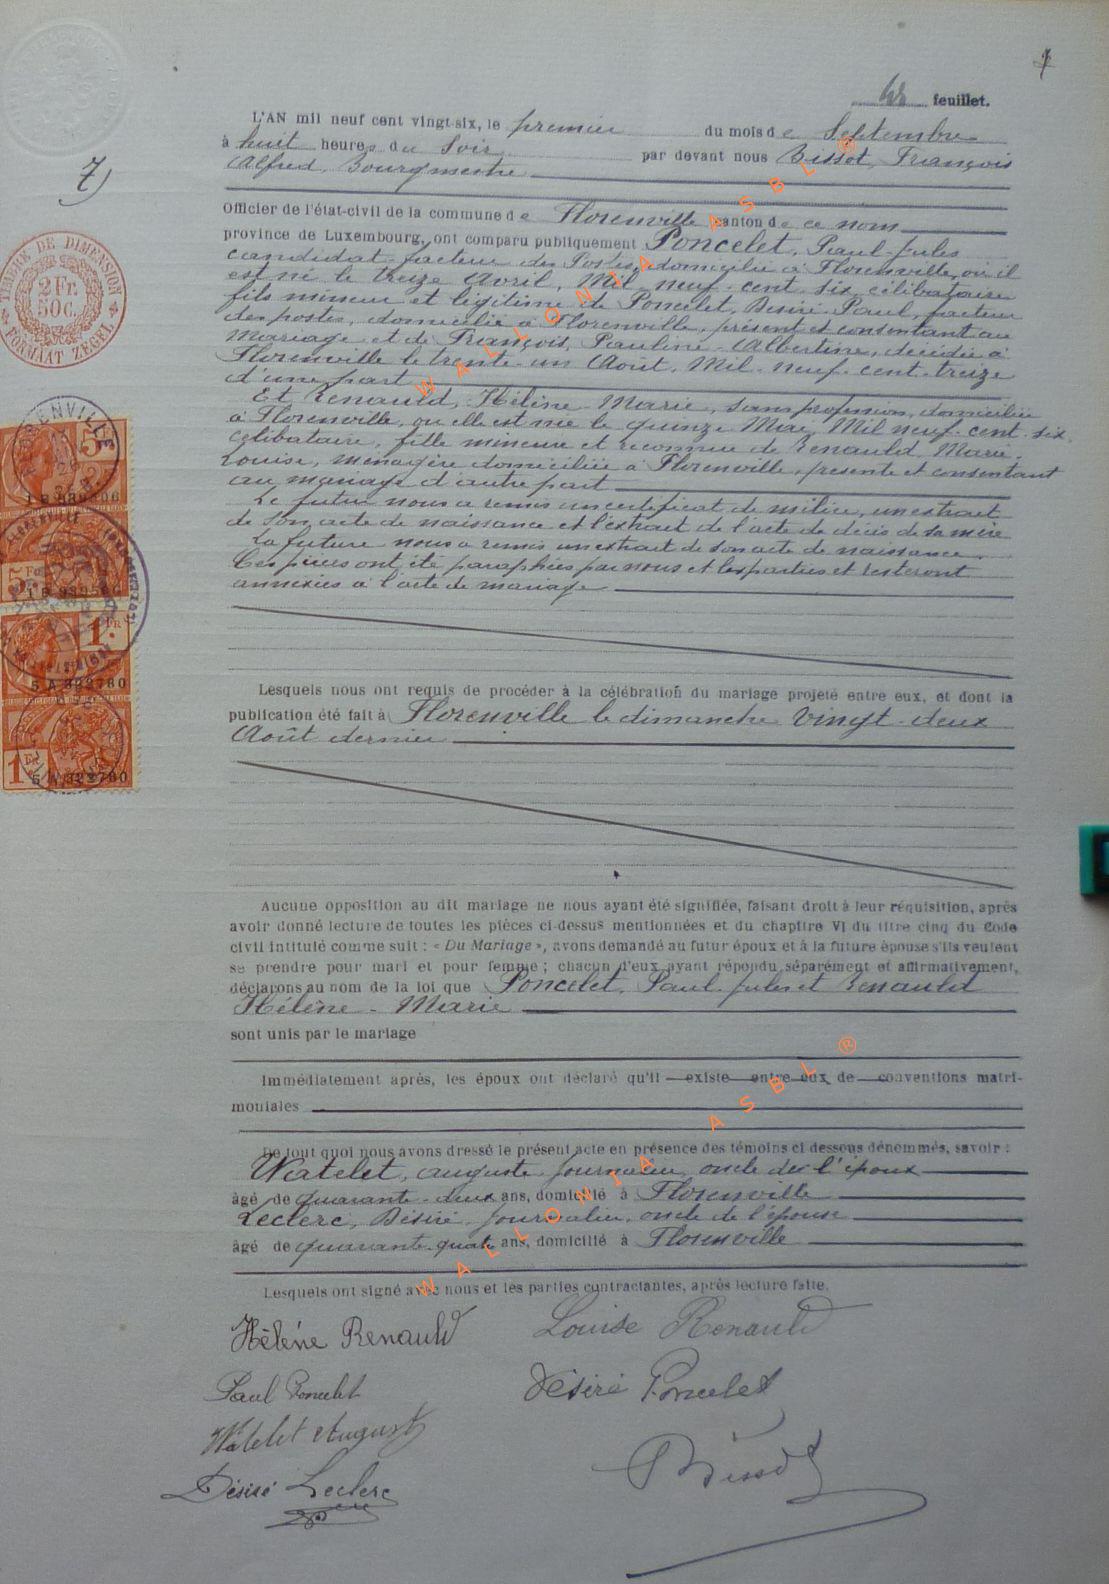 42 feuillet.
L'AN mil neuf cent vingt-six, le premier du mois de Septembre
à huit heures du Soir par devant nous Bissot, François
Alfred, Bourgmestre
7)
Officier de l'état-civil de la commune de Florenville canton de ce nom
province de Luxembourg, ont comparu publiquement Poncelet, Paul-Jules
candidat-facteur des Postes, domicilié à Florenville, où il
est né le treize Avril, Mil-neuf-cent-six, célibataire
fils mineur et légitime de Poncelet, Désiré-Paul, facteur
des postes, domicilié à Florenville, présent et consentant au
mariage et de François, Pauline-Albertine, décédée à
Florenville le trente-un Août, Mil-neuf-cent-treize
d'une part
Et Renauld, Hélène-Marie, sans profession, domiciliée
à Florenville, où elle est née le quinze Mai, Mil neuf-cent-six,
célibataire, fille mineure et reconnue de Renauld, Marie-
Louise, ménagère domiciliée à Florenville, présente et consentant
au mariage d'autre part
Le futur nous a remis un certificat de milice, un extrait
de son acte de naissance et l'extrait de l'acte de décès de sa mère
La future nous a remis un extrait de son acte de naissance.
Ces pièces ont été paraphées par nous et les parties et resteront
annexées à l'acte de mariage
TIMBRE DE DIMENSION
2 Fr.
50 C.
FORMAAT ZEGEL
FLORENVILLE
5
5 Fr
1 FR
5 A 322780
1 FR
5 A 322780
Lesquels nous ont requis de procéder à la célébration du mariage projeté entre eux, et dont la
publication été fait à Florenville le dimanche vingt-deux
Août dernier
Aucune opposition au dit mariage ne nous ayant été signifiée, faisant droit à leur réquisition, après
avoir donné lecture de toutes les pièces ci-dessus mentionnées et du chapitre VI du titre cinq du Code
civil intitulé comme suit : « Du Mariage », avons demandé au futur époux et à la future épouse s'ils veulent
se prendre pour mari et pour femme ; chacun d'eux ayant répondu séparément et affirmativement,
déclarons au nom de la loi que Poncelet, Paul-Jules et Renauld
Hélène-Marie
sont unis par le mariage
Immédiatement après, les époux ont déclaré qu'il existe entre eux de conventions matri-
moniales
De tout quoi nous avons dressé le présent acte en présence des témoins ci dessous dénommés, savoir :
Watelet, auguste, journalier, oncle de l'époux
âgé de quarante-deux ans, domicilié à Florenville
Leclerc, Désiré, journalier, oncle de l'épouse
âgé de quarante-quatre ans, domicilié à Florenville
Lesquels ont signé avec nous et les parties contractantes, après lecture faite.
Hélène Renauld Louise Renauld
Paul Poncelet Désiré Poncelet
Watelet August
Bissot
Désiré Leclerc
WALLONIA ASBL ®
WALLONIA ASBL ®